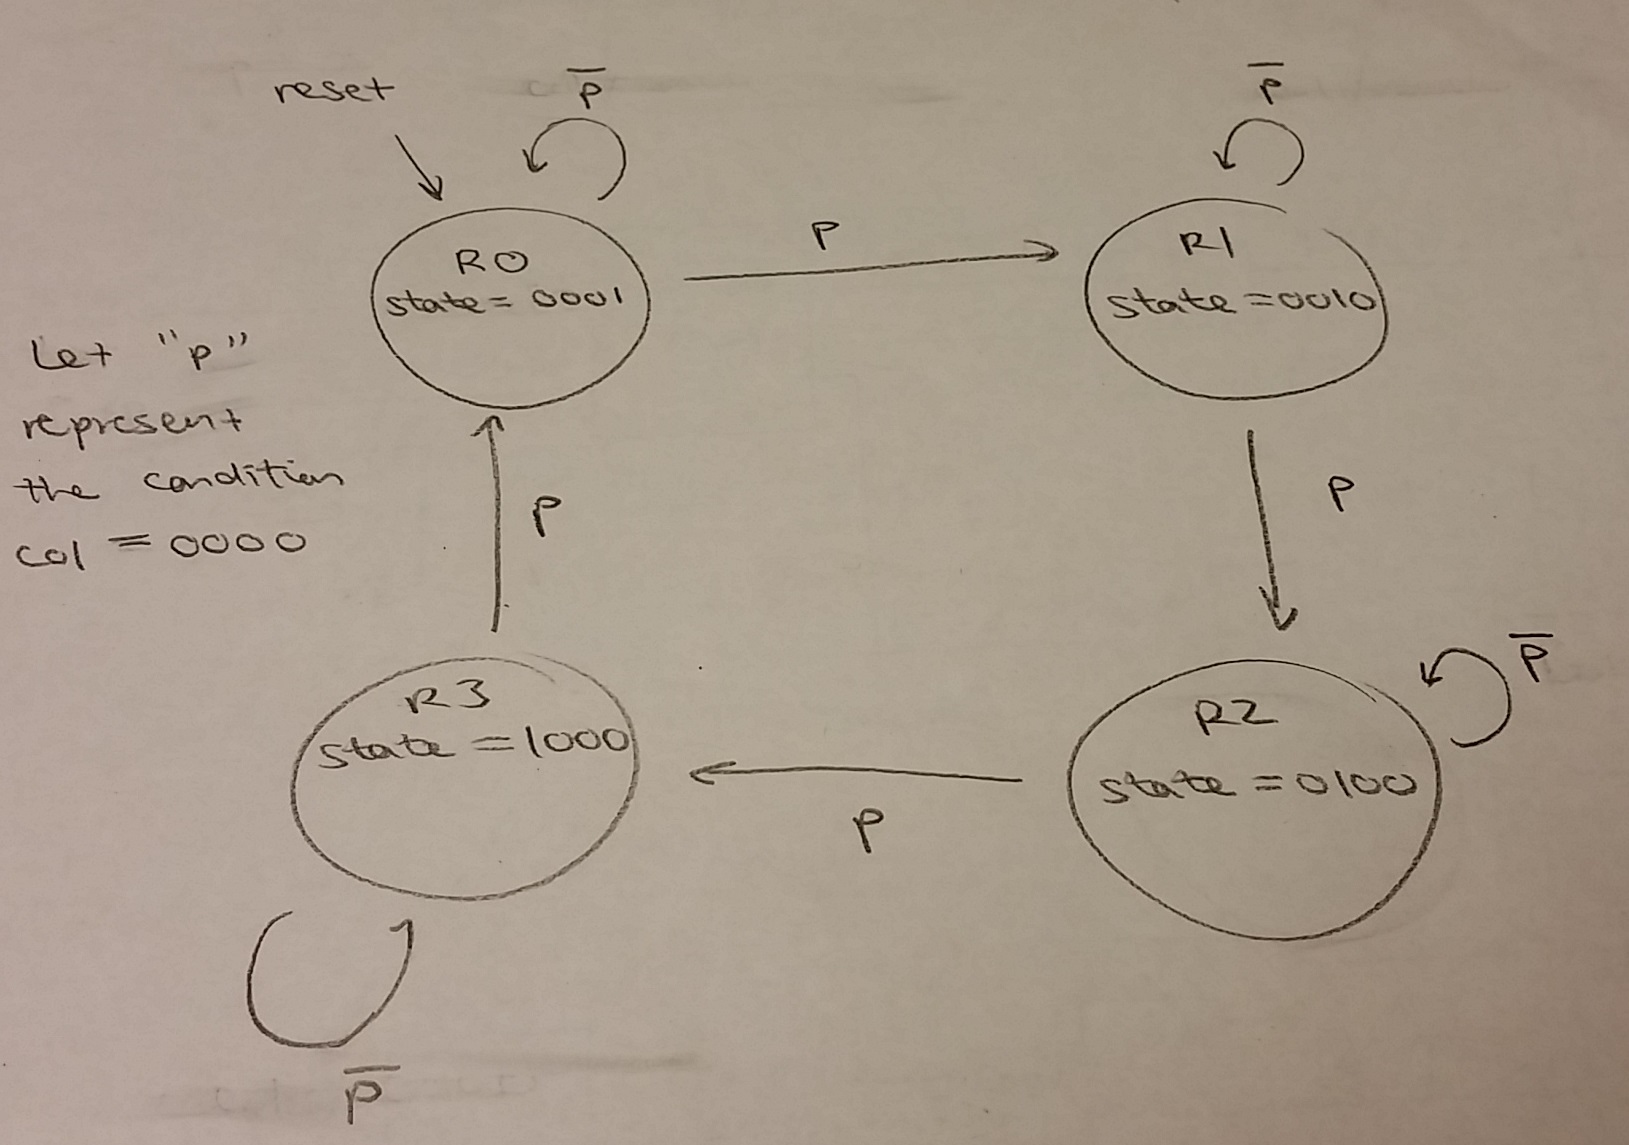 reset
p̅
p̅
R0
state = 0001
P
R1
state = 0010
Let "p"
represent
the condition
col = 0000
P
P
R3
state = 1000
P
R2
state = 0100
p̅
p̅